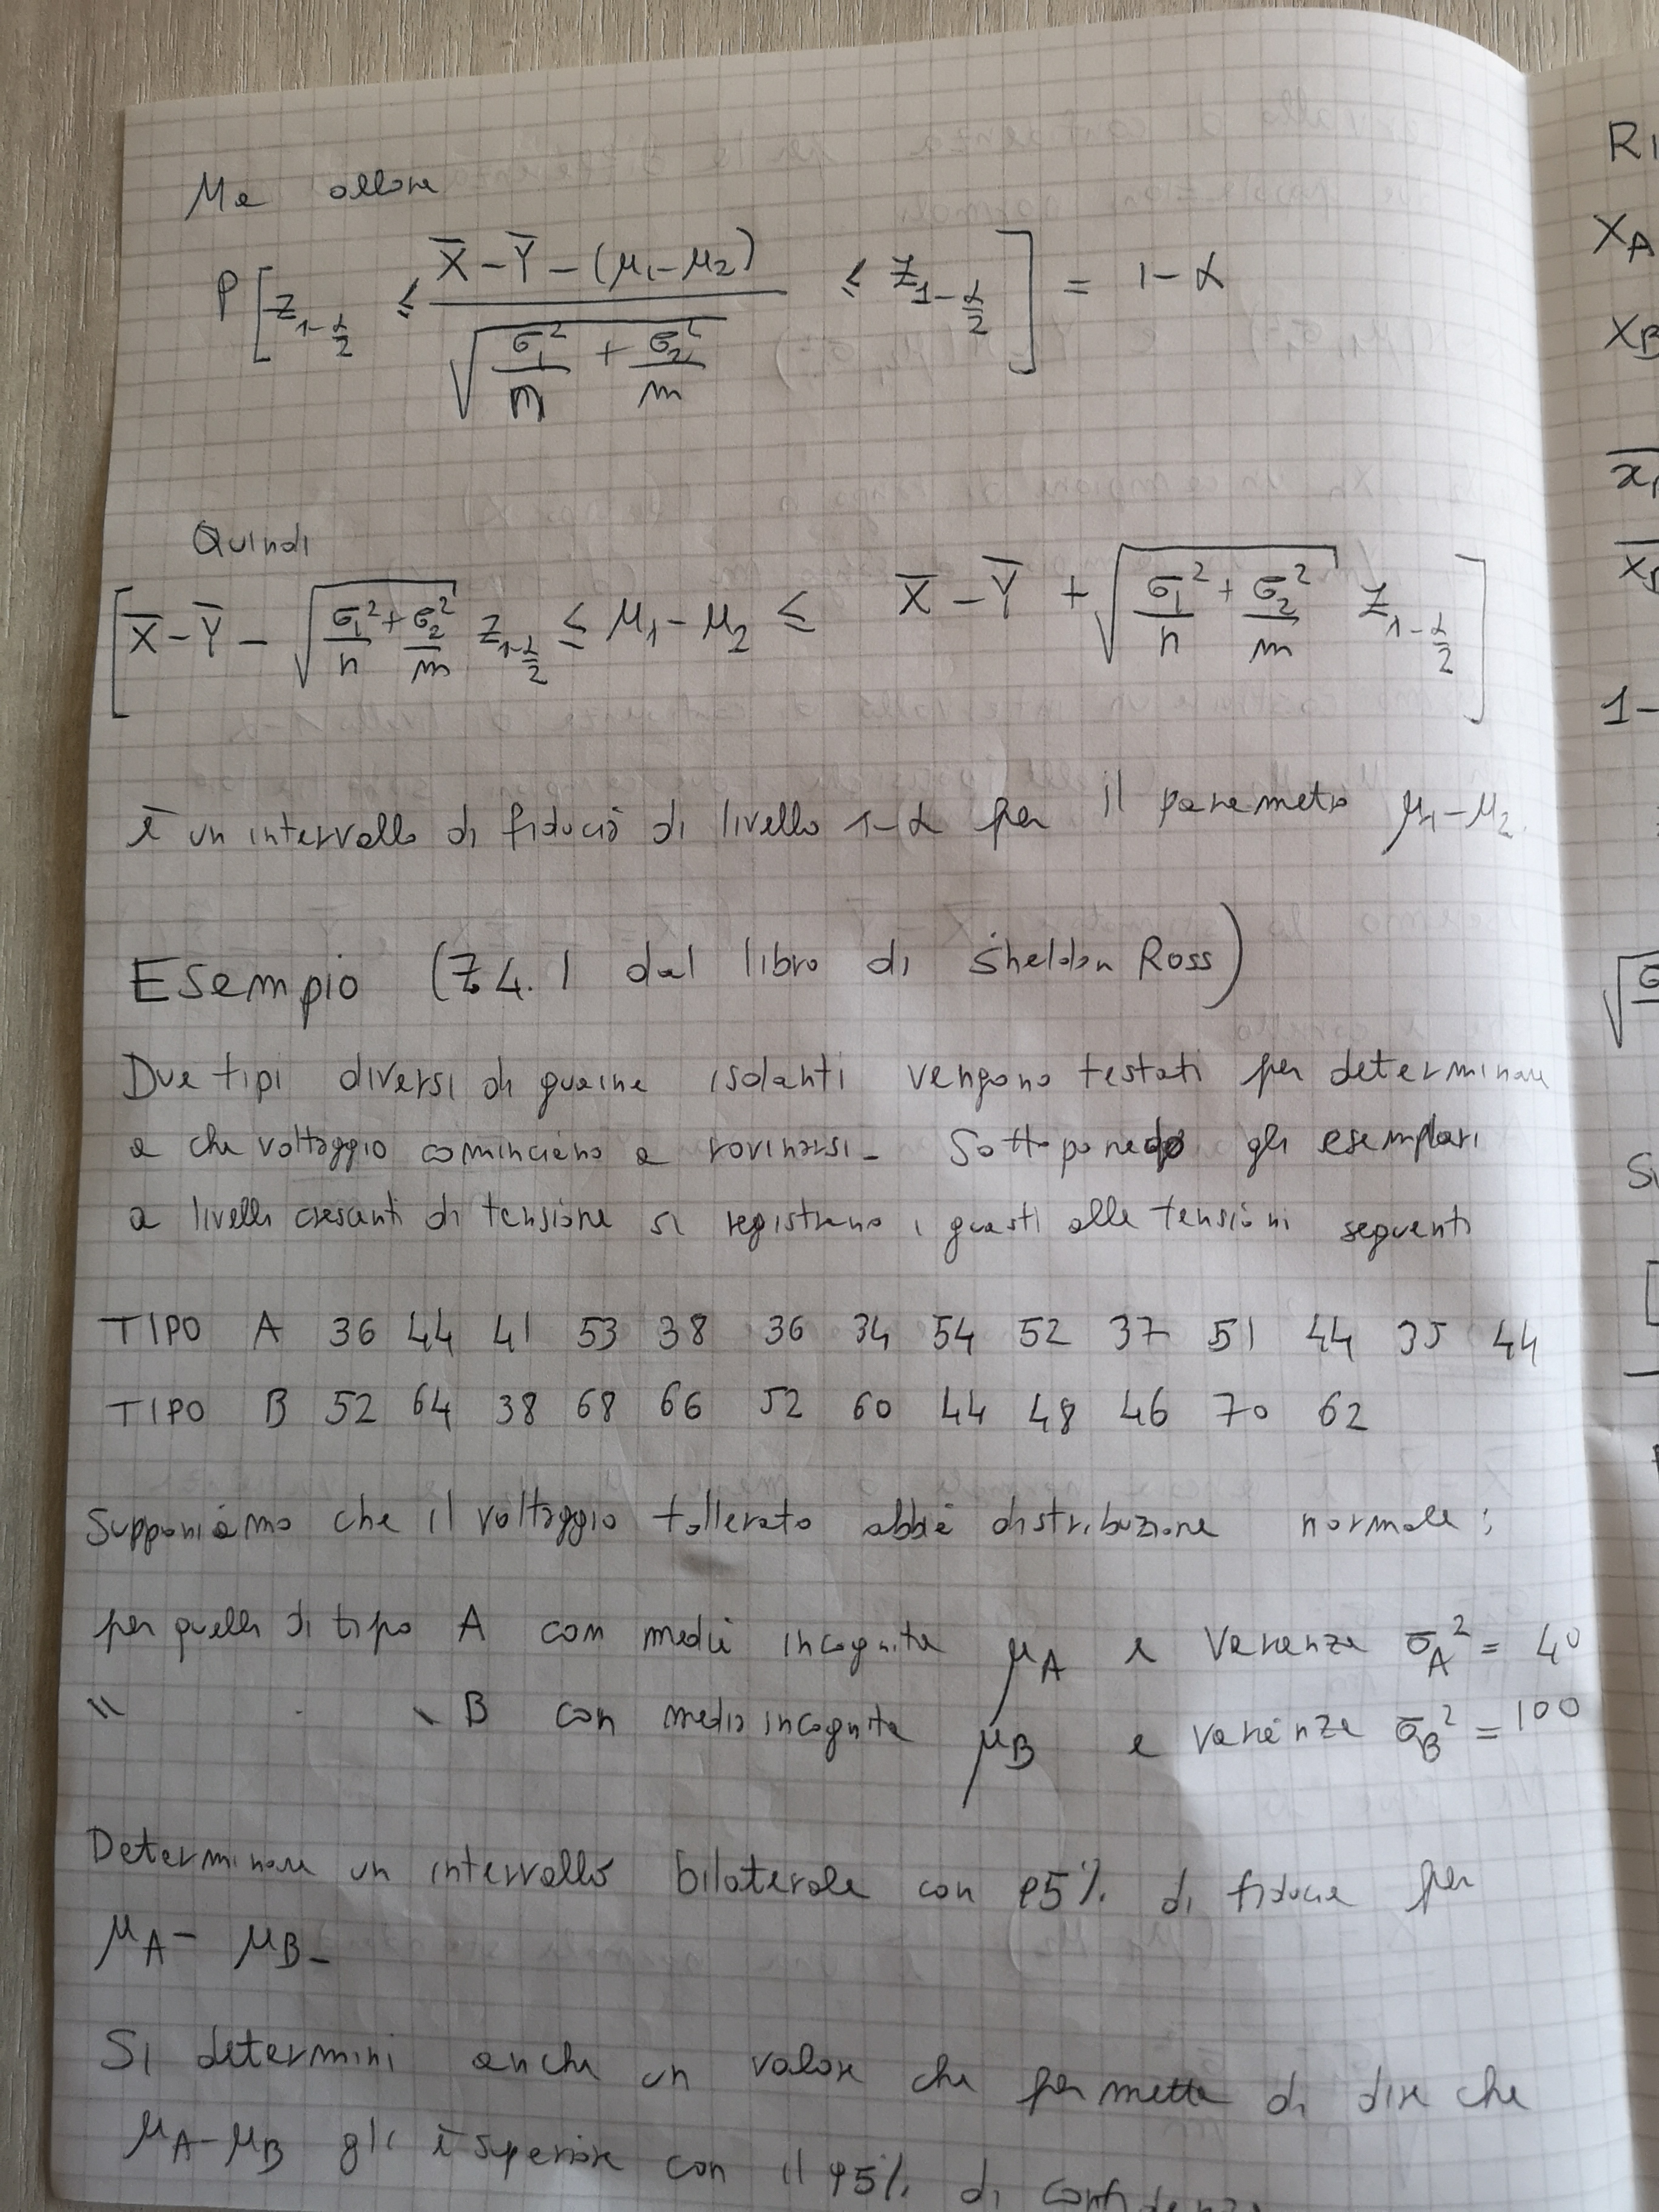 Ma allora
P[-z_{1-α/2} ≤ (X̄-Ȳ-(μ₁-μ₂))/√(σ₁²/n + σ₂²/m) ≤ z_{1-α/2}] = 1-α
Quindi
[X̄-Ȳ-√(σ₁²/n + σ₂²/m) z_{1-α/2} ≤ μ₁-μ₂ ≤ X̄-Ȳ+√(σ₁²/n + σ₂²/m) z_{1-α/2}]
è un intervallo di fiducia di livello 1-α per il parametro μ₁-μ₂.
Esempio (7.4.1 dal libro di Sheldon Ross)
Due tipi diversi di guaine isolanti vengono testati per determinare
a che voltaggio cominciano a rovinarsi. Sottoponedo gli esemplari
a livelli crescenti di tensione si registrano i guasti alle tensioni seguenti
TIPO A 36 44 41 53 38 36 34 54 52 37 51 44 35 44
TIPO B 52 64 38 68 66 52 60 44 48 46 70 62
Supponiamo che il voltaggio tollerato abbia distribuzione normale;
per quelle di tipo A con media incognita μA e varianza σA² = 40
" " B con media incognita μB e varianza σB² = 100
Determinare un intervallo bilaterale con 95% di fiducia per
μA - μB.
Si determini anche un valore che permette di dire che
μA-μB gli è superiore con il 95% di confidenza
RI
XA
XB
1-